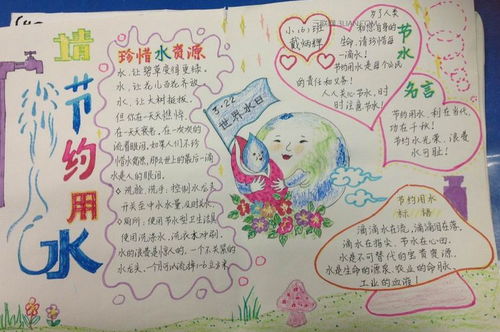 请节约用水
珍惜水资源
水,让碧草变得更绿,
水,让花儿百花齐放
水,让大树挺拔,
但你在一天天担忧,
在一天天衰老,在一次次的
流着眼泪,如果人们不珍
惜水资源,那么世上的最后一滴
水是人的眼泪。
洗脸、洗手,控制水龙头
开关至中水水量,及时关水
厕所:使用节水型卫生洁具
使用洗涤水、洗衣水冲刷,
水的浪费是惊人的,一个不关紧的
水龙头,一个月可以流掉1-6立方米
3·22
世界水日
小(6)班
戴炳辉
为了人类
和您自身的
生命,请珍惜每
一滴水!
节约用水是每个公民
的责任和义务!
人人关心节水,时
时注意节水!
节水
名言
节约用水,利在当代,
功在千秋!
节约水光荣,浪费
水可耻!
节约用水
标语
滴滴水在流,滴滴泪在落,
滴水在指尖,节水在心田,
水是不可替代的宝贵资源
水是生命的源泉、农业的命脉、
工业的血液!